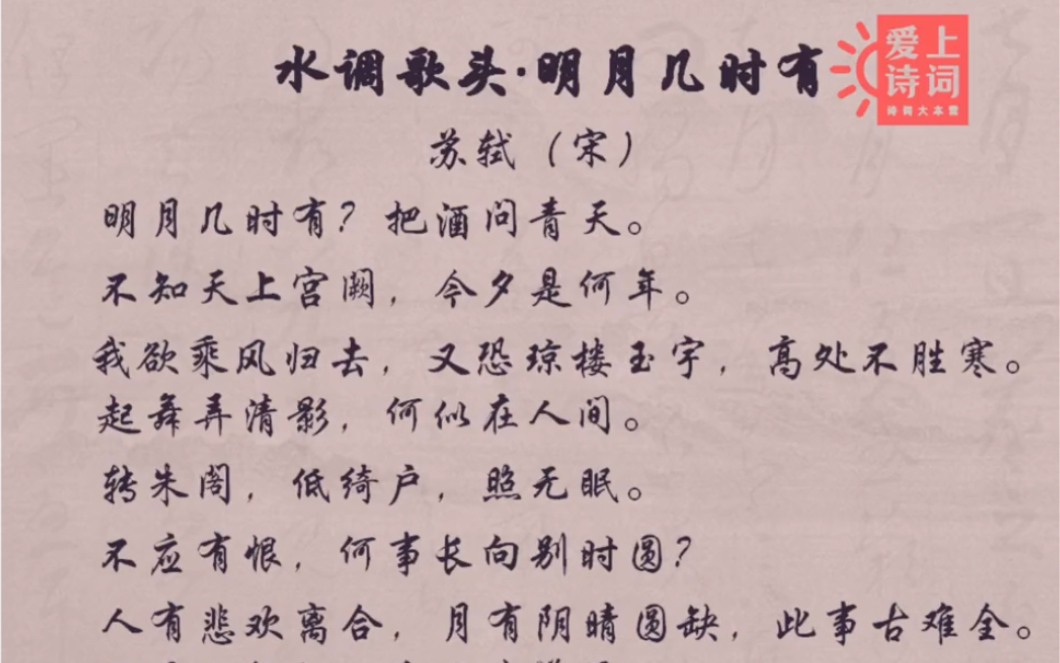 水调歌头·明月几时有
爱上
诗词
诗词大本营
苏轼（宋）
明月几时有？把酒问青天。
不知天上宫阙，今夕是何年。
我欲乘风归去，又恐琼楼玉宇，高处不胜寒。
起舞弄清影，何似在人间。
转朱阁，低绮户，照无眠。
不应有恨，何事长向别时圆？
人有悲欢离合，月有阴晴圆缺，此事古难全。